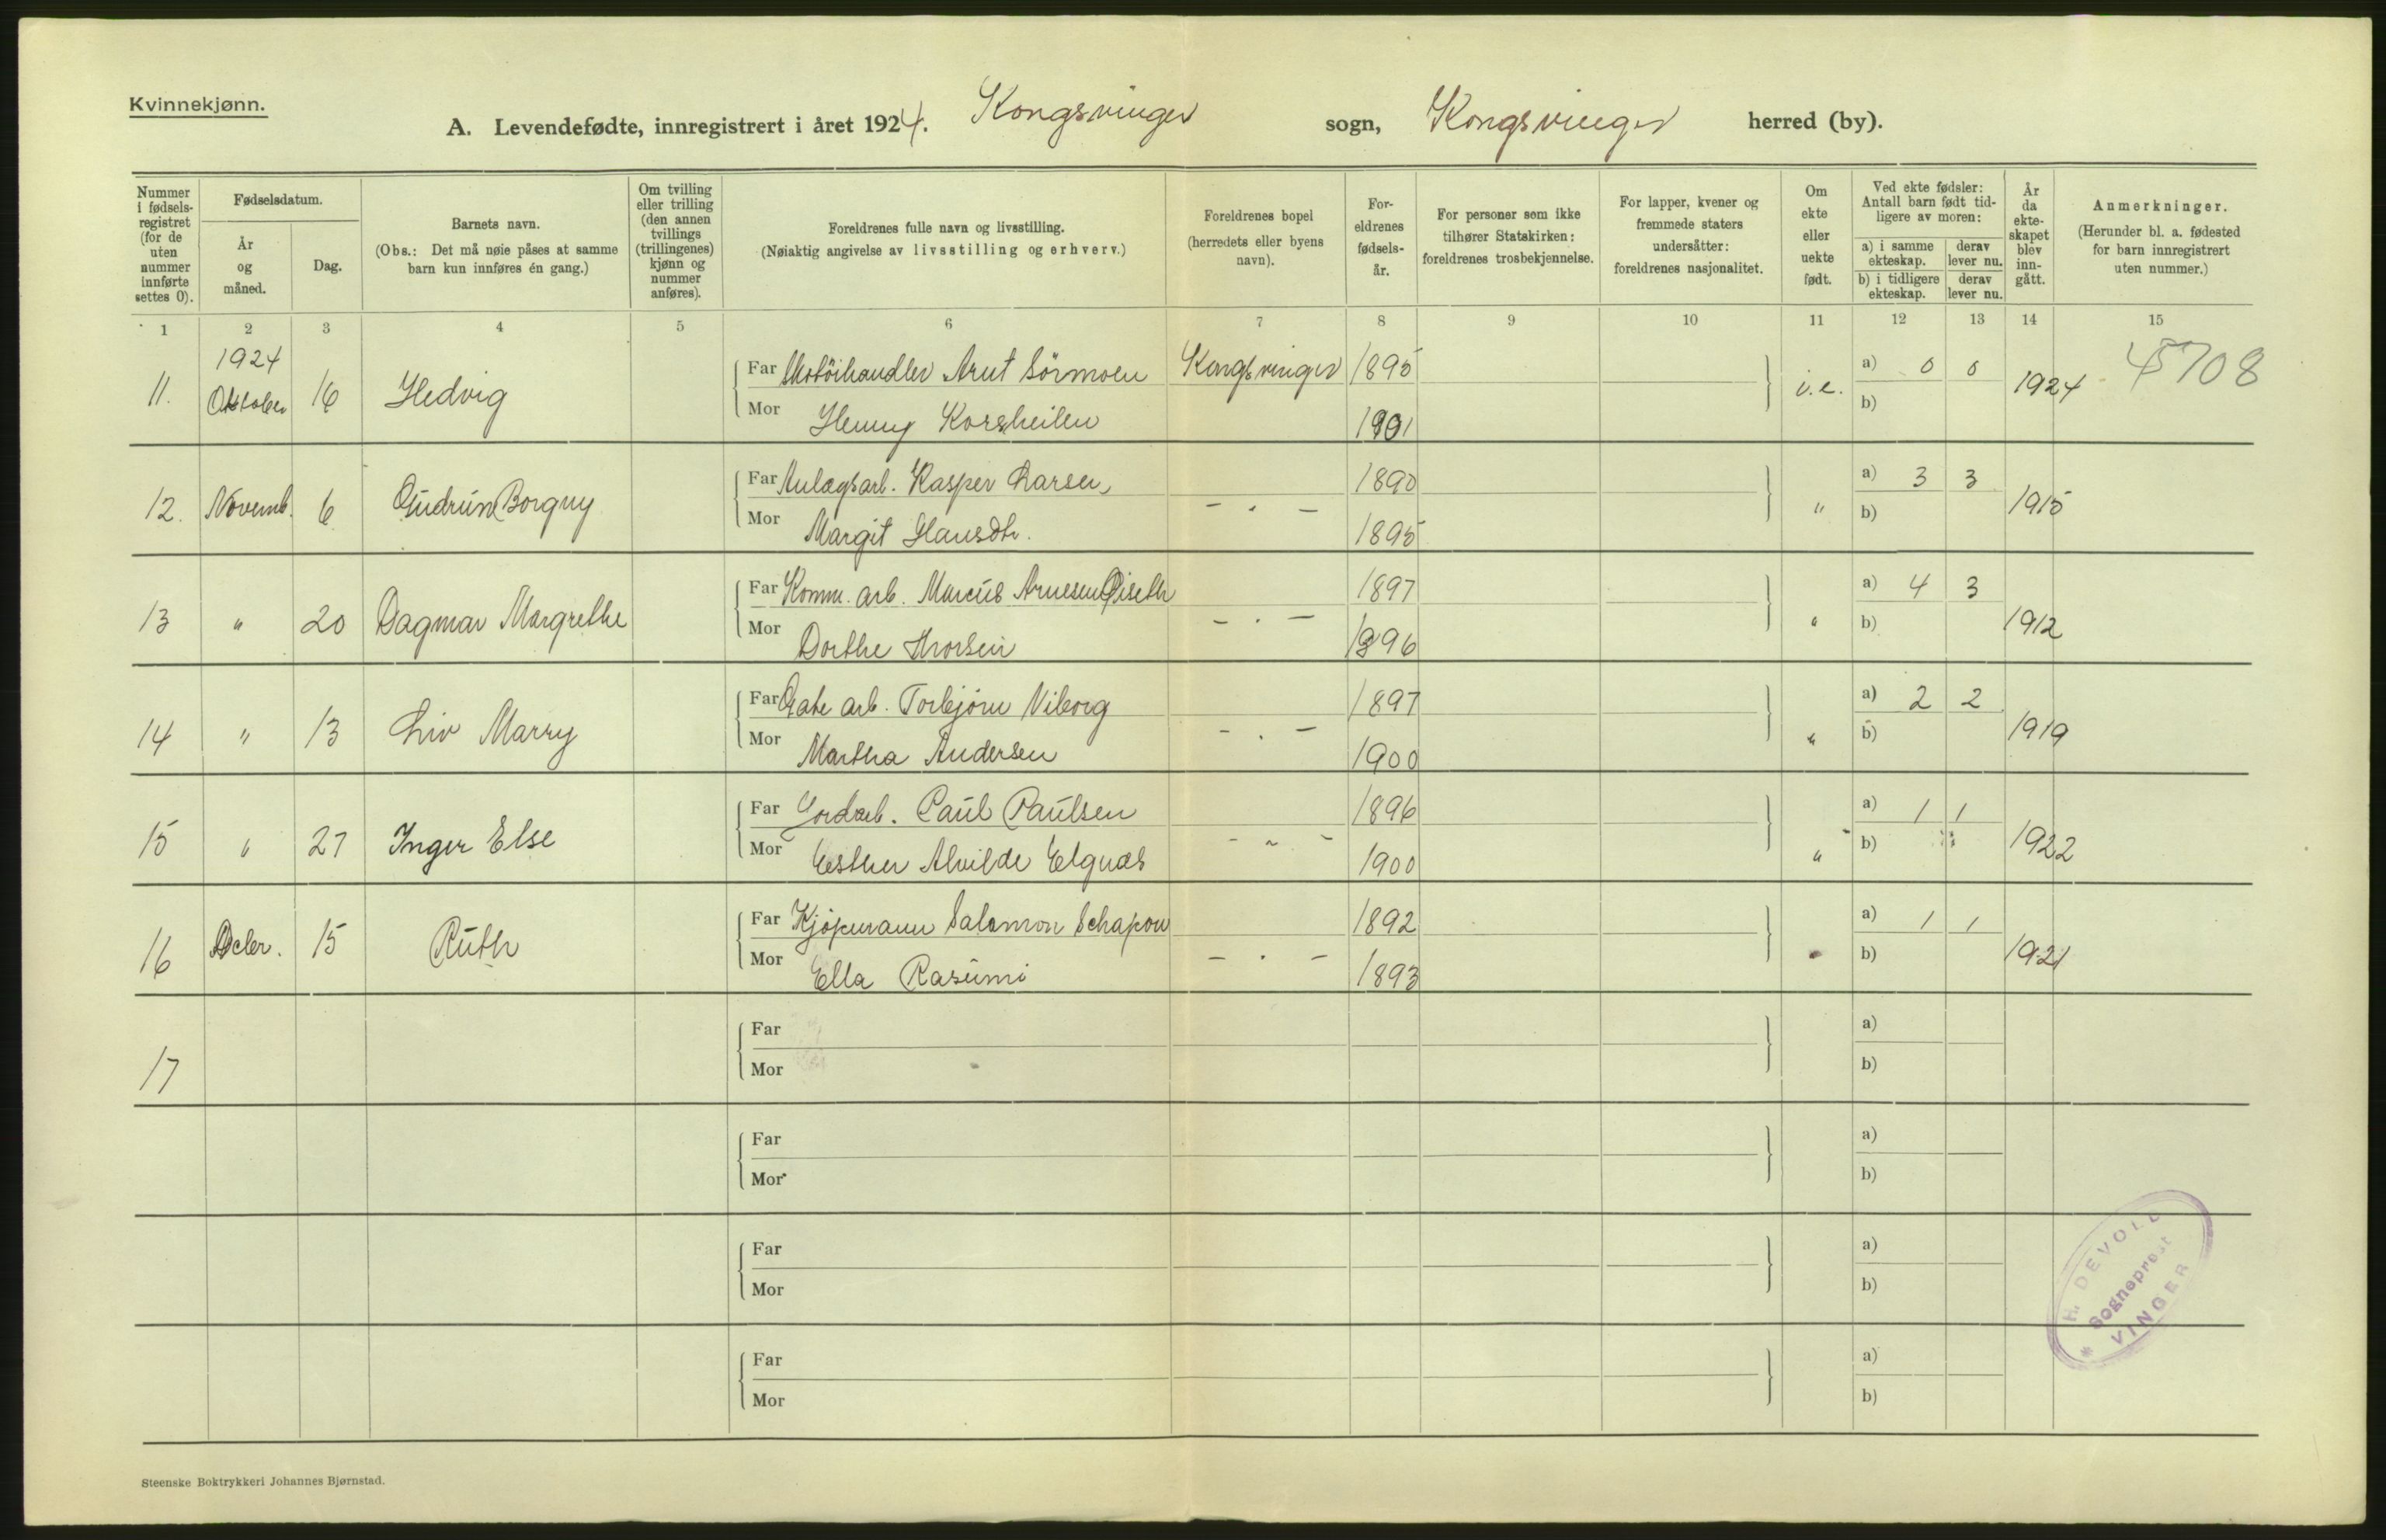 Kvinnekjønn.
A. Levendefødte, innregistrert i året 1924. Kongsvinger sogn, Kongsvinger herred (by).
Nummer i fødsels-registret (for de uten nummer innførte settes 0).
Fødselsdatum.
År og måned.
Dag.
Barnets navn.
(Obs.: Det må nøie påses at samme barn kun innføres én gang.)
Om tvilling eller trilling (den annen tvillings (trillingenes) kjønn og nummer anføres).
Foreldrenes fulle navn og livsstilling.
(Nøiaktig angivelse av livsstilling og erhverv.)
Foreldrenes bopel (herredets eller byens navn).
For-eldrenes fødsels-år.
For personer som ikke tilhører Statskirken: foreldrenes trosbekjennelse.
For lapper, kvener og fremmede staters undersåtter: foreldrenes nasjonalitet.
Om ekte eller uekte født.
Ved ekte fødsler: Antall barn født tid-ligere av moren:
a) i samme ekteskap. derav lever nu.
b) i tidligere ekteskap. derav lever nu.
År da ekte-skapet blev inn-gått.
Anmerkninger.
(Herunder bl. a. fødested for barn innregistrert uten nummer.)
1 2 3 4 5 6 7 8 9 10 11 12 13 14 15
1924
11. Oktober 16 Hedvig Far Skotöihandler Arnt Sörmoen Kongsvinger 1895 i.e. a) 0 0 1924 45708
Mor Henny Korsheilen 1901 b)
12. Novemb. 6 Gudrun Borgny Far Anlægsarb. Kasper Larsen - . - 1890 " a) 3 3 1915
Mor Margit Hansdtr. 1895 b)
13 " 20 Dagmar Margrethe Far Komm. arb. Marcus Arnesen Öiseth - . - 1897 " a) 4 3 1912
Mor Dorthe Thorsen 1896 b)
14 " 13 Liv Marry Far Gate arb. Torbjörn Viborg - . - 1897 " a) 2 2 1919
Mor Martha Andersen 1900 b)
15 " 27 Inger Else Far Jordarb. Paul Paulsen - " - 1896 " a) 1 1 1922
Mor Esther Alvilde Elgnæs 1900 b)
16 Dcbr. 15 Ruth Far Kjöpmann Salomon Schapow - . - 1892 " a) 1 1 1921
Mor Ella Rasumi 1893 b)
17 Far a)
Mor b)
Far a)
Mor b)
Far a)
Mor b)
Far a)
Mor b)
H. DEVOLD
Sogneprest
* VINGER
Steenske Boktrykkeri Johannes Bjørnstad.